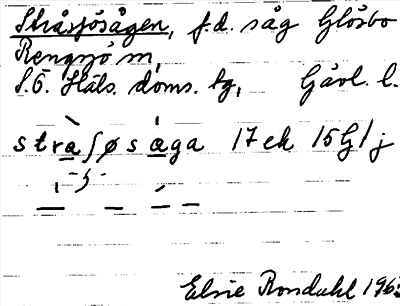 Stråsjösågen, f.d. såg Glösbo
Rengsjö sn,
S.Ö. Häls. doms. tg, Gävl. l.
strà∫øsága 17 ek 15Glj
Elsie Rondahl 1965